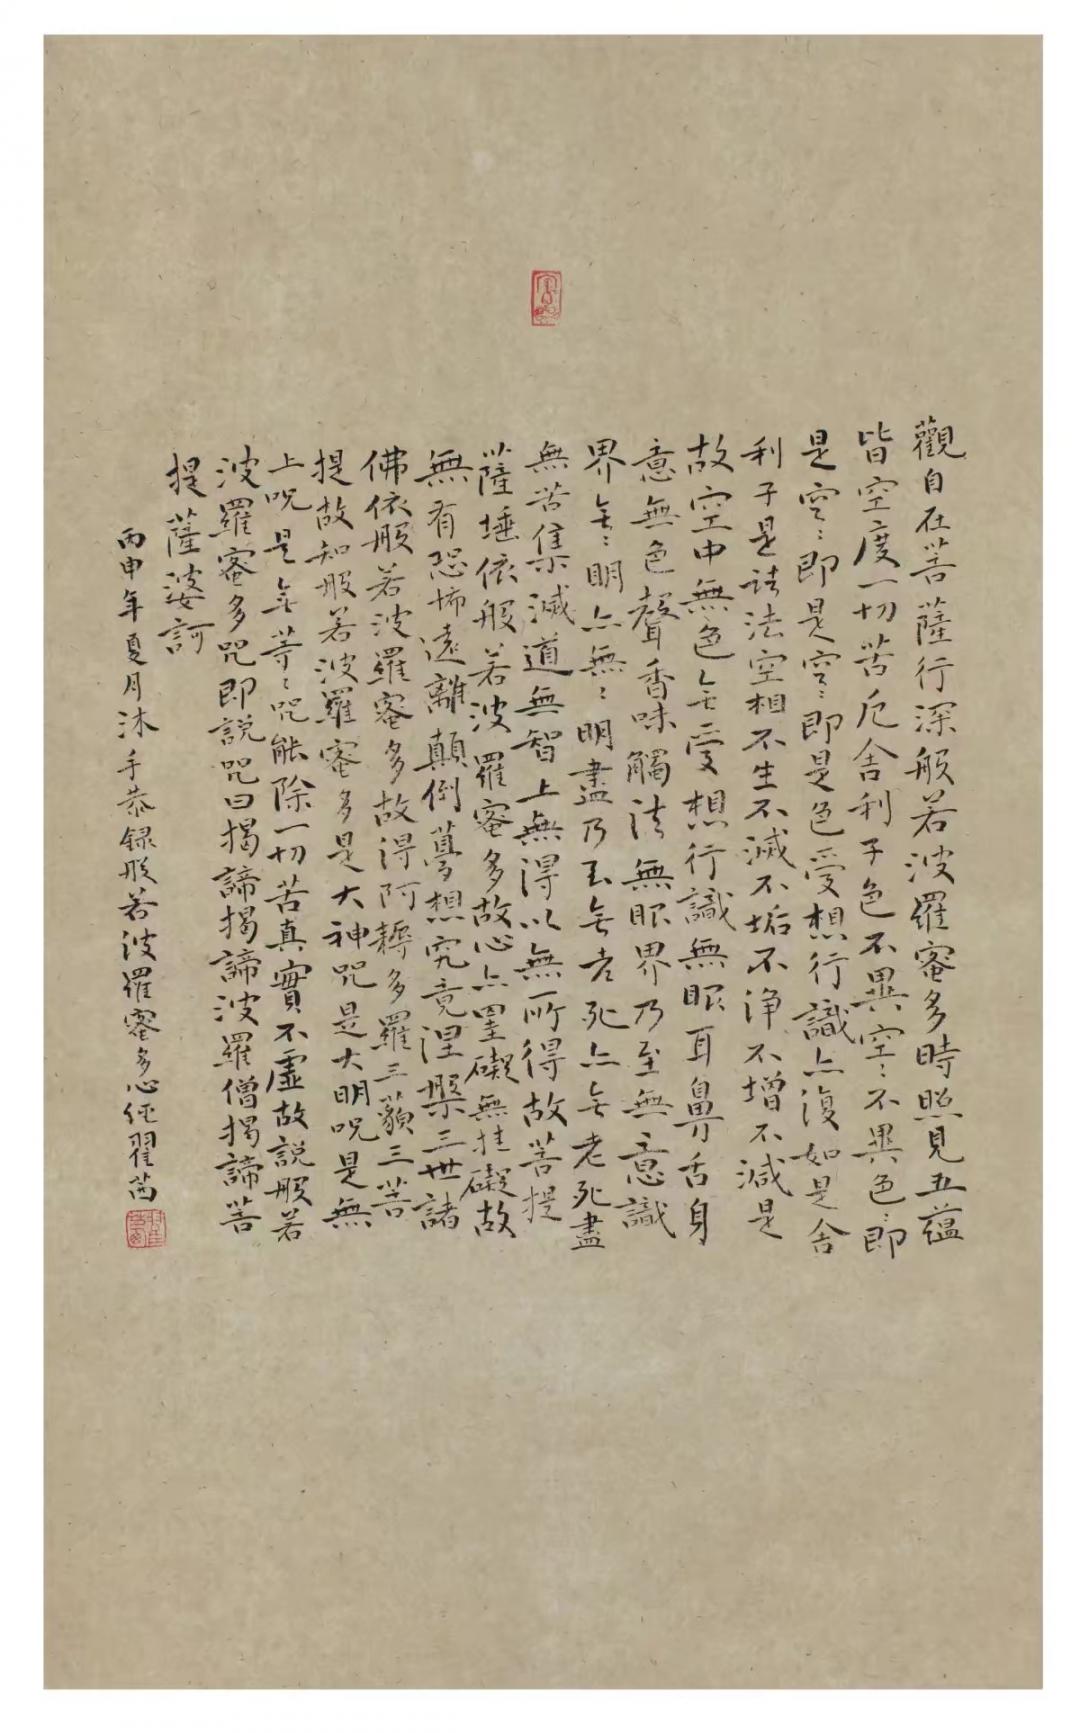 觀自在菩薩行深般若波羅蜜多時照見五蘊
皆空度一切苦厄舍利子色不異空〻不異色〻即
是空〻即是空〻即是色受想行識亦復如是舍
利子是諸法空相不生不滅不垢不淨不增不減是
故空中無色無受想行識無眼耳鼻舌身
意無色聲香味觸法無眼界乃至無意識
界無〻明亦無〻明盡乃至無老死亦無老死盡
無苦集滅道無智上無得以無所得故菩提
薩埵依般若波羅蜜多故心亦罣礙無挂礙故
無有恐怖遠離顛倒夢想究竟涅槃三世諸
佛依般若波羅蜜多故得阿耨多羅三藐三菩
提故知般若波羅蜜多是大神咒是大明咒是無
上咒是無等〻咒能除一切苦真實不虛故說般若
波羅蜜多咒即說咒曰揭諦揭諦波羅僧揭諦菩
提薩婆訶
丙申年夏月沐手恭録般若波羅蜜多心經翟茜